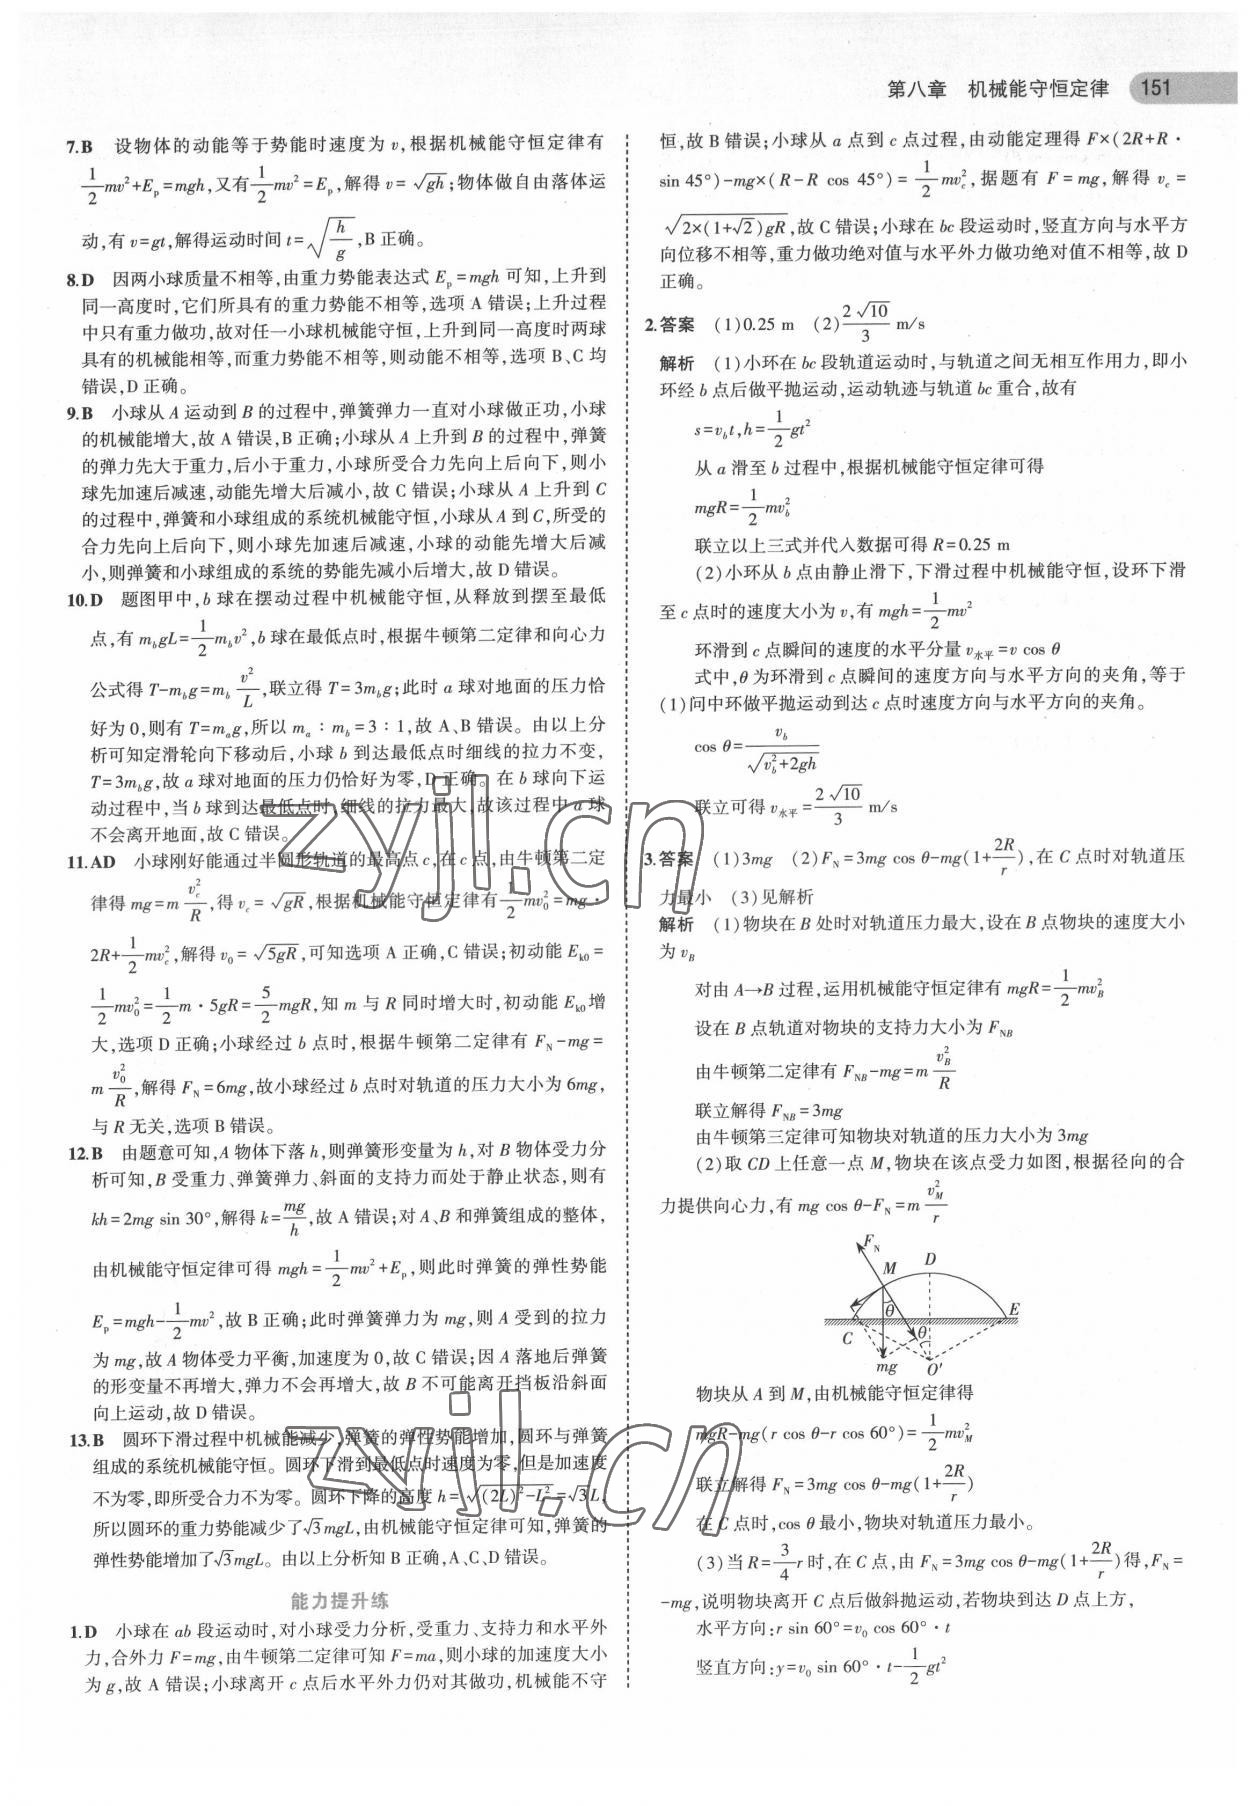 第八章　机械能守恒定律　151
7.B　设物体的动能等于势能时速度为 v,根据机械能守恒定律有
1/2 mv²+Eₚ=mgh,又有 1/2 mv²=Eₚ,解得 v=√gh;物体做自由落体运
动,有 v=gt,解得运动时间 t=√(h/g),B 正确。
8.D　因两小球质量不相等,由重力势能表达式 Eₚ=mgh 可知,上升到
同一高度时,它们所具有的重力势能不相等,选项 A 错误;上升过程
中只有重力做功,故对任一小球机械能守恒,上升到同一高度时两球
具有的机械能相等,而重力势能不相等,则动能不相等,选项 B、C 均
错误,D 正确。
9.B　小球从 A 运动到 B 的过程中,弹簧弹力一直对小球做正功,小球
的机械能增大,故 A 错误,B 正确;小球从 A 上升到 B 的过程中,弹簧
的弹力先大于重力,后小于重力,小球所受合力先向上后向下,则小
球先加速后减速,动能先增大后减小,故 C 错误;小球从 A 上升到 C
的过程中,弹簧和小球组成的系统机械能守恒,小球从 A 到 C,所受的
合力先向上后向下,则小球先加速后减速,小球的动能先增大后减
小,则弹簧和小球组成的系统的势能先减小后增大,故 D 错误。
10.D　题图甲中,b 球在摆动过程中机械能守恒,从释放到摆至最低
点,有 m_b gL=1/2 m_b v²,b 球在最低点时,根据牛顿第二定律和向心力
公式得 T-m_b g=m_b v²/L,联立得 T=3m_b g;此时 a 球对地面的压力恰
好为 0,则有 T=m_a g,所以 m_a∶m_b=3∶1,故 A、B 错误。由以上分
析可知定滑轮向下移动后,小球 b 到达最低点时细线的拉力不变,
T=3m_b g,故 a 球对地面的压力仍恰好为零,D 正确。在 b 球向下运
动过程中,当 b 球到达最低点时,细线的拉力最大,故该过程中 a 球
不会离开地面,故 C 错误。
11.AD　小球刚好能通过半圆形轨道的最高点 c,在 c 点,由牛顿第二定
律得 mg=m v_c²/R,得 v_c=√gR,根据机械能守恒定律有 1/2 mv₀²=mg·
2R+1/2 mv_c²,解得 v₀=√5gR,可知选项 A 正确,C 错误;初动能 E_k0=
1/2 mv₀²=1/2 m·5gR=5/2 mgR,知 m 与 R 同时增大时,初动能 E_k0 增
大,选项 D 正确;小球经过 b 点时,根据牛顿第二定律有 F_N-mg=
m v₀²/R,解得 F_N=6mg,故小球经过 b 点时对轨道的压力大小为 6mg,
与 R 无关,选项 B 错误。
12.B　由题意可知,A 物体下落 h,则弹簧形变量为 h,对 B 物体受力分
析可知,B 受重力、弹簧弹力、斜面的支持力而处于静止状态,则有
kh=2mg sin 30°,解得 k=mg/h,故 A 错误;对 A、B 和弹簧组成的整体,
由机械能守恒定律可得 mgh=1/2 mv²+Eₚ,则此时弹簧的弹性势能
Eₚ=mgh-1/2 mv²,故 B 正确;此时弹簧弹力为 mg,则 A 受到的拉力
为 mg,故 A 物体受力平衡,加速度为 0,故 C 错误;因 A 落地后弹簧
的形变量不再增大,弹力不会再增大,故 B 不可能离开挡板沿斜面
向上运动,故 D 错误。
13.B　圆环下滑过程中机械能减少,弹簧的弹性势能增加,圆环与弹簧
组成的系统机械能守恒。圆环下滑到最低点时速度为零,但是加速度
不为零,即所受合力不为零。圆环下降的高度 h=√((2L)²-L²)=√3L,
所以圆环的重力势能减少了√3mgL,由机械能守恒定律可知,弹簧的
弹性势能增加了√3mgL。由以上分析知 B 正确,A、C、D 错误。
能力提升练
1.D　小球在 ab 段运动时,对小球受力分析,受重力、支持力和水平外
力,合外力 F=mg,由牛顿第二定律可知 F=ma,则小球的加速度大小
为 g,故 A 错误;小球离开 c 点后水平外力仍对其做功,机械能不守
恒,故 B 错误;小球从 a 点到 c 点过程,由动能定理得 F×(2R+R·
sin 45°)-mg×(R-R cos 45°)=1/2 mv_c²,据题有 F=mg,解得 v_c=
√(2×(1+√2)gR),故 C 错误;小球在 bc 段运动时,竖直方向与水平方
向位移不相等,重力做功绝对值与水平外力做功绝对值不相等,故 D
正确。
2.答案　(1)0.25 m　(2)2√10/3 m/s
解析　(1)小环在 bc 段轨道运动时,与轨道之间无相互作用力,即小
环经 b 点后做平抛运动,运动轨迹与轨道 bc 重合,故有
s=v_b t,h=1/2 gt²
从 a 滑至 b 过程中,根据机械能守恒定律可得
mgR=1/2 mv_b²
联立以上三式并代入数据可得 R=0.25 m
(2)小环从 b 点由静止滑下,下滑过程中机械能守恒,设环下滑
至 c 点时的速度大小为 v,有 mgh=1/2 mv²
环滑到 c 点瞬间的速度的水平分量 v水平=v cos θ
式中,θ 为环滑到 c 点瞬间的速度方向与水平方向的夹角,等于
(1)问中环做平抛运动到达 c 点时速度方向与水平方向的夹角。
cos θ=v_b/√(v_b²+2gh)
联立可得 v水平=2√10/3 m/s
3.答案　(1)3mg　(2)F_N=3mg cos θ-mg(1+2R/r),在 C 点时对轨道压
力最小　(3)见解析
解析　(1)物块在 B 处时对轨道压力最大,设在 B 点物块的速度大小
为 v_B
对由 A→B 过程,运用机械能守恒定律有 mgR=1/2 mv_B²
设在 B 点轨道对物块的支持力大小为 F_NB
由牛顿第二定律有 F_NB-mg=m v_B²/R
联立解得 F_NB=3mg
由牛顿第三定律可知物块对轨道的压力大小为 3mg
(2)取 CD 上任意一点 M,物块在该点受力如图,根据径向的合
力提供向心力,有 mg cos θ-F_N=m v_M²/r
F_N
M D
θ E
C θ
mg O'
物块从 A 到 M,由机械能守恒定律得
mgR-mg(r cos θ-r cos 60°)=1/2 mv_M²
联立解得 F_N=3mg cos θ-mg(1+2R/r)
在 C 点时,cos θ 最小,物块对轨道压力最小。
(3)当 R=3/4 r 时,在 C 点,由 F_N=3mg cos θ-mg(1+2R/r)得,F_N=
-mg,说明物块离开 C 点后做斜抛运动,若物块到达 D 点上方,
水平方向:r sin 60°=v₀ cos 60°·t
竖直方向:y=v₀ sin 60°·t-1/2 gt²
zyjl.cn
zyjl.cn